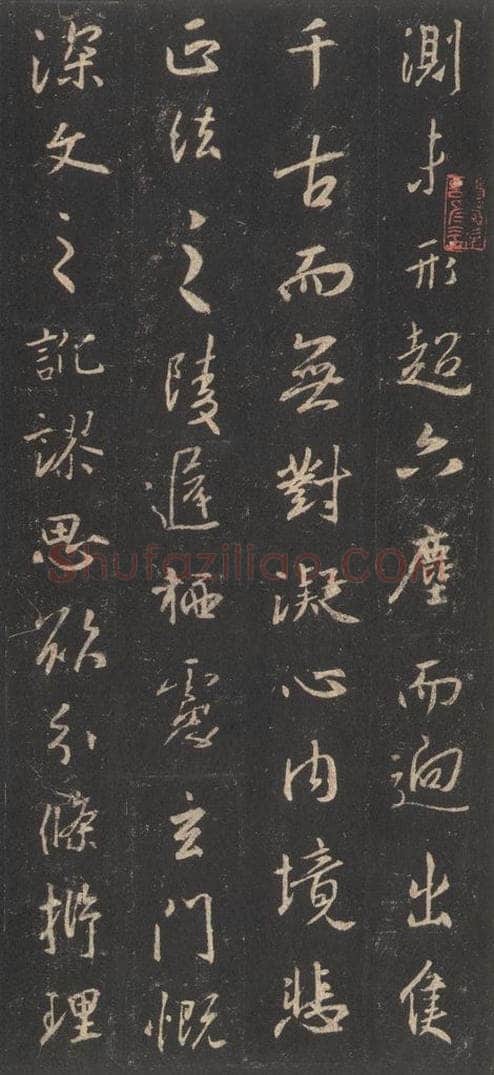 測未形超六塵而迥出隻
千古而無對凝心内境悲
正法之陵遲栖慮玄門慨
深文之訛謬思欲分條析理
Shufaziliao.com